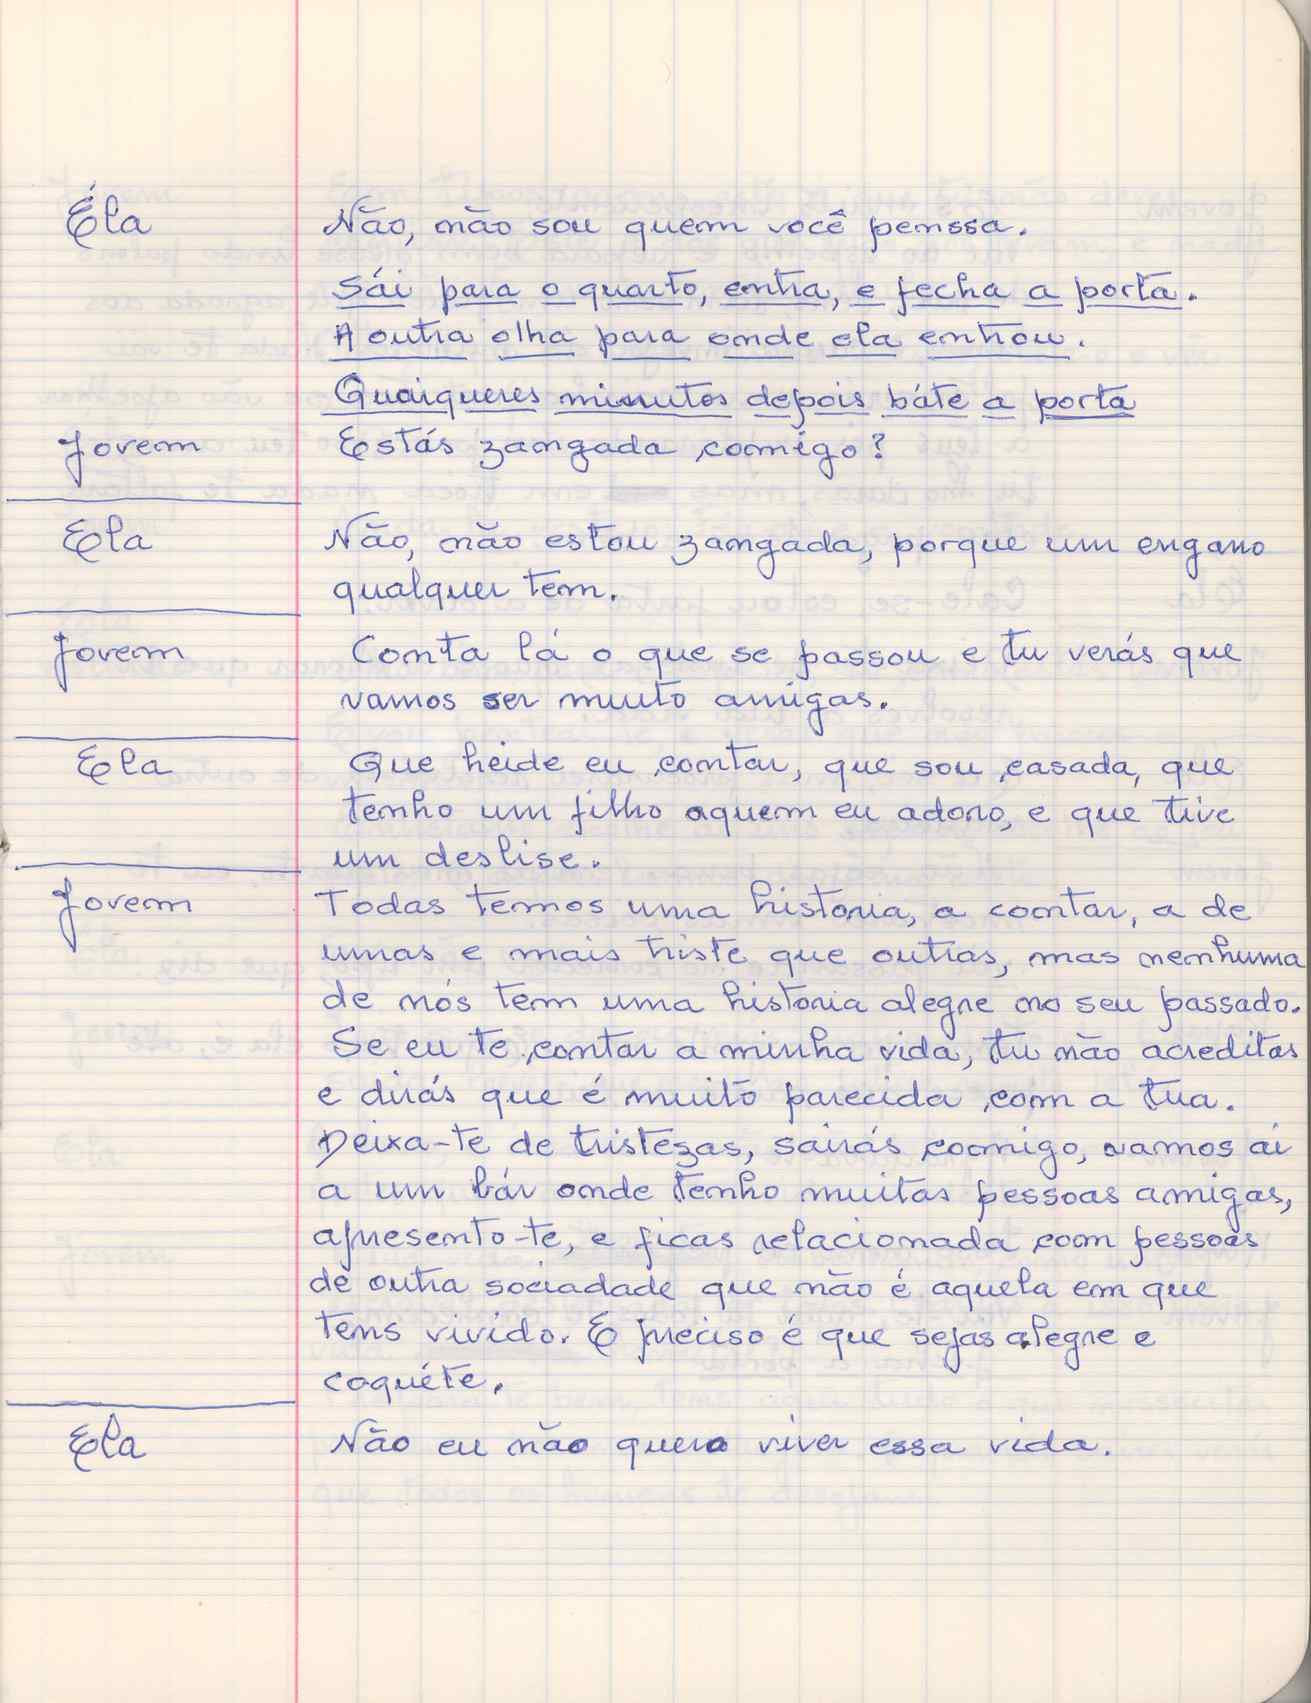 Éla Não, não sou quem você penssa.
Sái para o quarto, entra, e fecha a porta.
A outra olha para onde ela entrou.
Quaiqueres minutos depois báte a porta
Jovem Estás zangada comigo?
Ela Não, não estou zangada, porque um engano
qualquer tem.
Jovem Conta lá o que se passou e tu verás que
vamos ser muito amigas.
Ela Que heide eu contar, que sou casada, que
tenho um filho aquem eu adoro, e que tive
um deslise.
Jovem Todas temos uma historia, a contar, a de
umas e mais triste que outras, mas nenhuma
de nós tem uma historia alegre no seu passado.
Se eu te contar a minha vida, tu não acreditas
e dirás que é muito parecida com a tua.
Deixa-te de tristezas, sairás comigo, vamos ai
a um bár onde tenho muitas pessoas amigas,
apresento-te, e ficas relacionada com pessoas
de outra sociadade que não é aquela em que
tens vivido. E preciso é que sejas alegre e
coquéte.
Ela Não eu não quero viver essa vida.